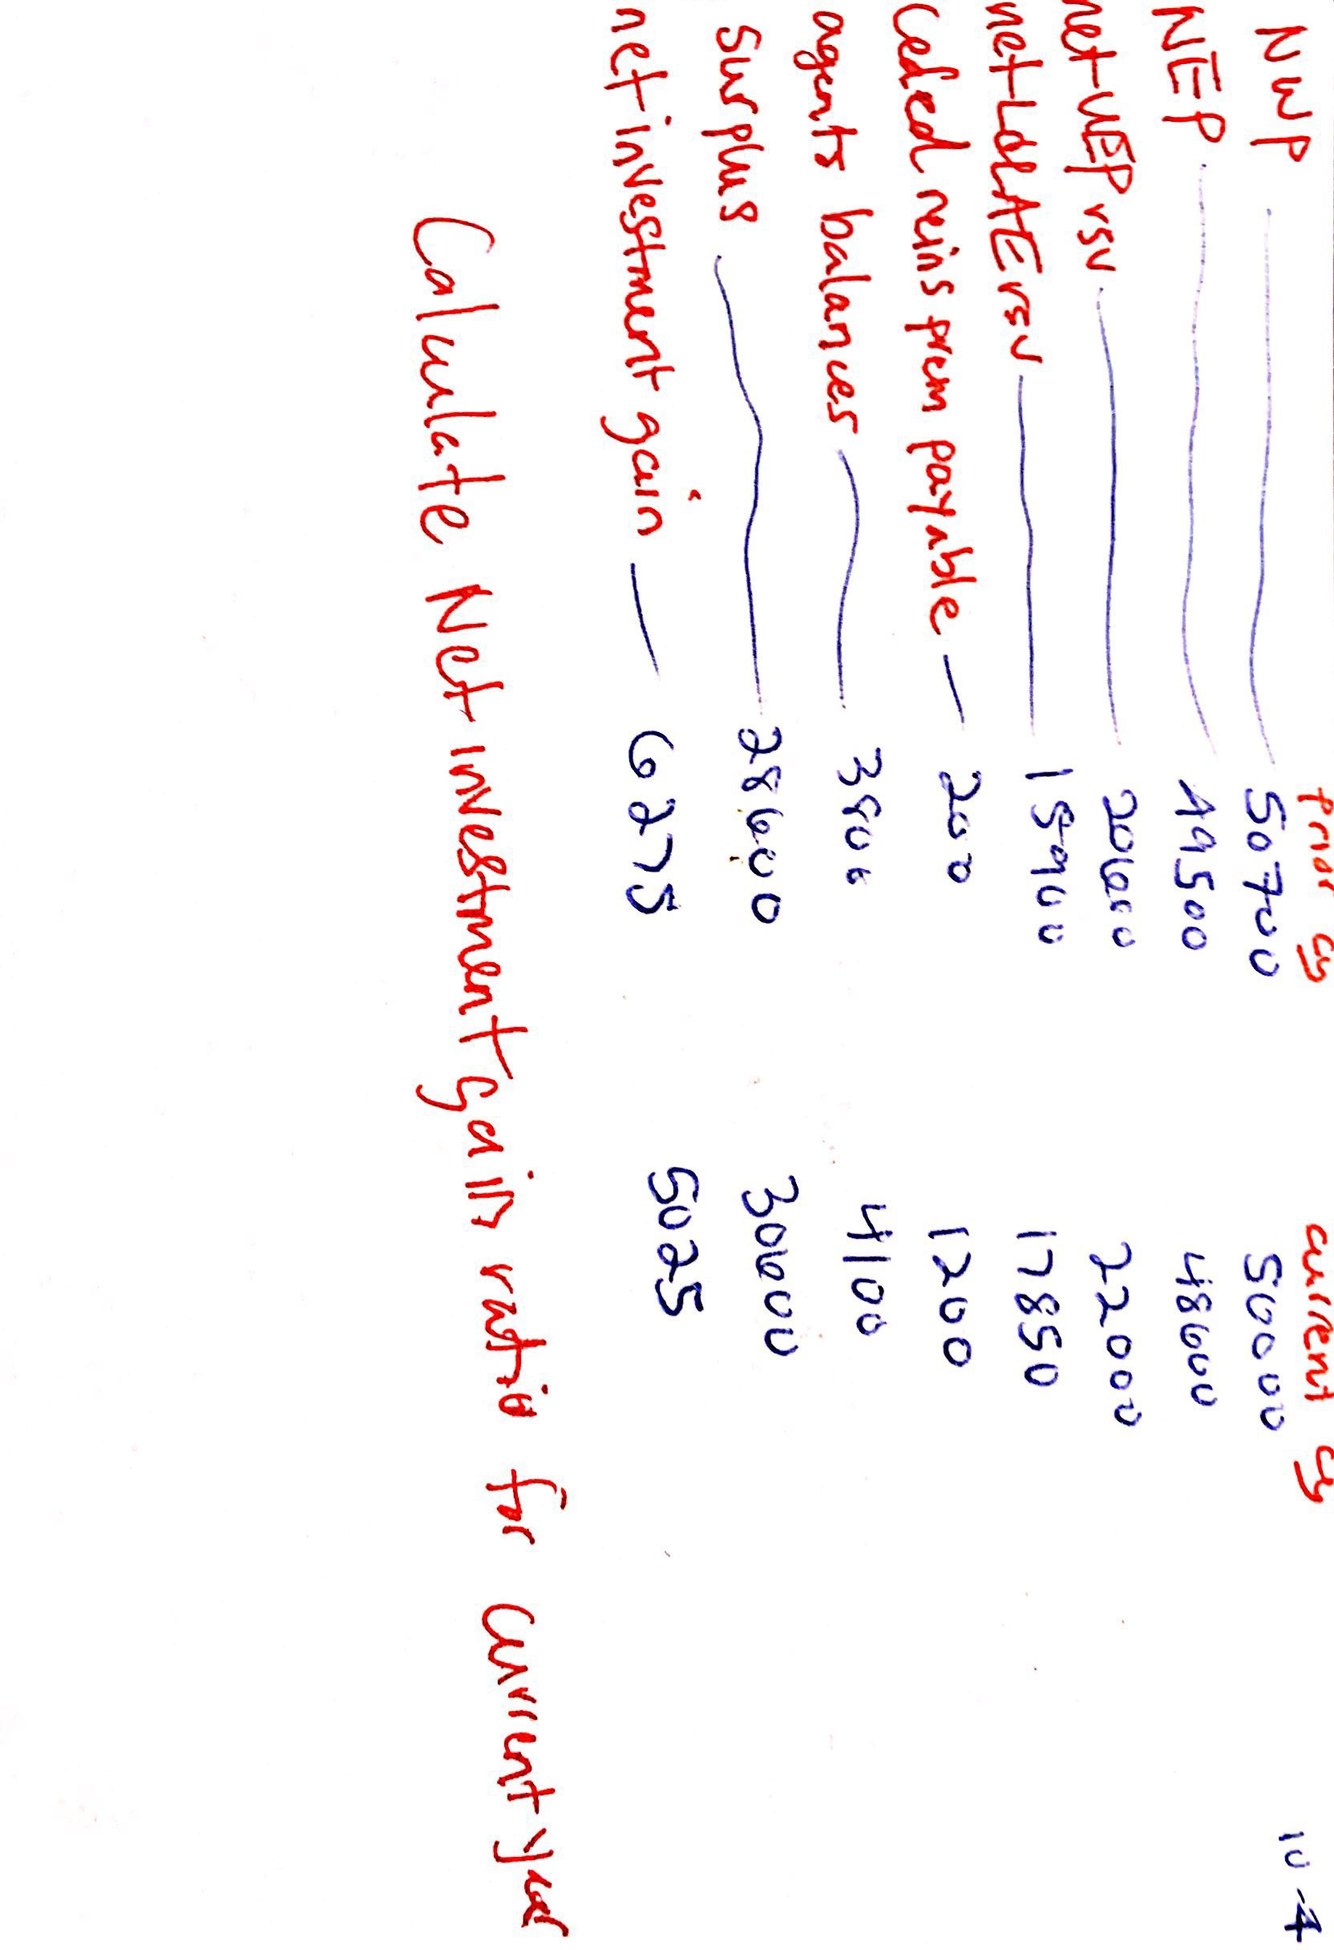 10-4
prior cy current cy
NWP 50700 50000
NEP 49500 48600
net UEP rsv 20600 22000
net L&LAE rsv 15900 17850
Ceded reins prem payable 200 1200
agents balances 3800 4100
Surplus 28600 30600
net investment gain 6275 5025
Calculate Net investment gain ratio for current year